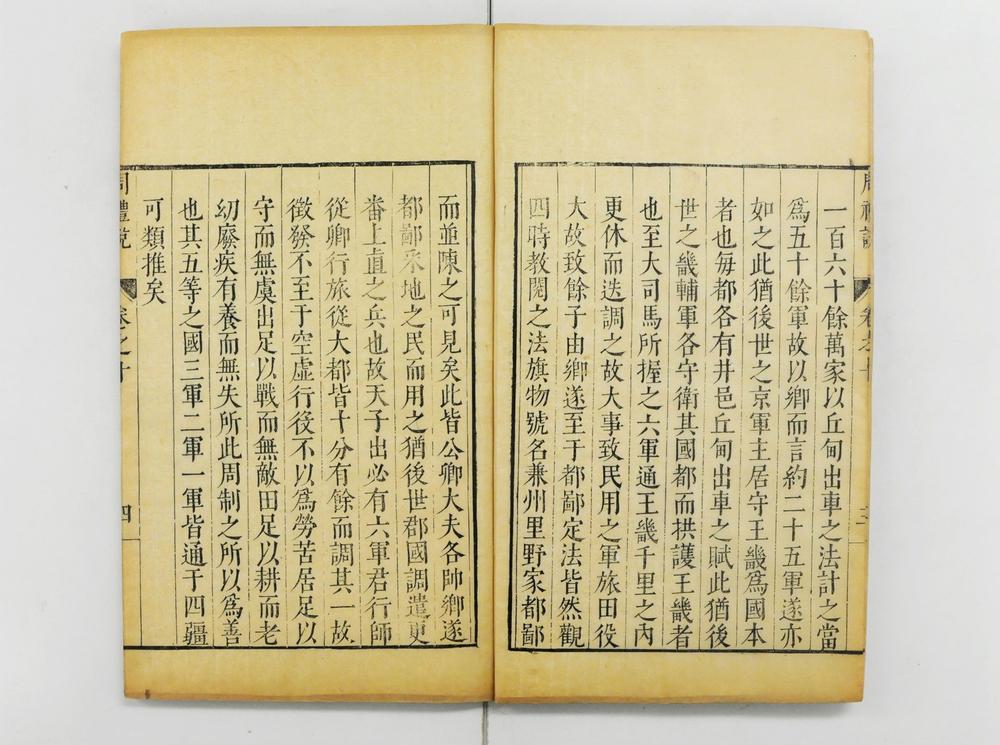 一百六十餘萬家以丘甸出車之法計之當
爲五十餘軍故以鄉而言約二十五軍遂亦
如之此猶後世之京軍主居守王畿爲國本
者也每都各有井邑丘甸出車之賦此猶後
世之畿輔軍各守衛其國都而拱護王畿者
也至大司馬所握之六軍通王畿千里之內
更休而迭調之故大事致民用之軍旅田役
大故致餘子由鄉遂至于都鄙定法皆然觀
四時教閱之法旗物號名兼州里野家都鄙
而並陳之可見矣此皆公卿大夫各帥鄉遂
都鄙采地之民而用之猶後世郡國調遣更
番上直之兵也故天子出必有六軍君行師
從卿行旅從大都皆十分有餘而調其一故
徵發不至于空虛行役不以爲勞苦居足以
守而無虞出足以戰而無敵田足以耕而老
幼廢疾有養而無失所此周制之所以爲善
也其五等之國三軍二軍一軍皆通于四疆
可類推矣
周禮說 卷之十 四